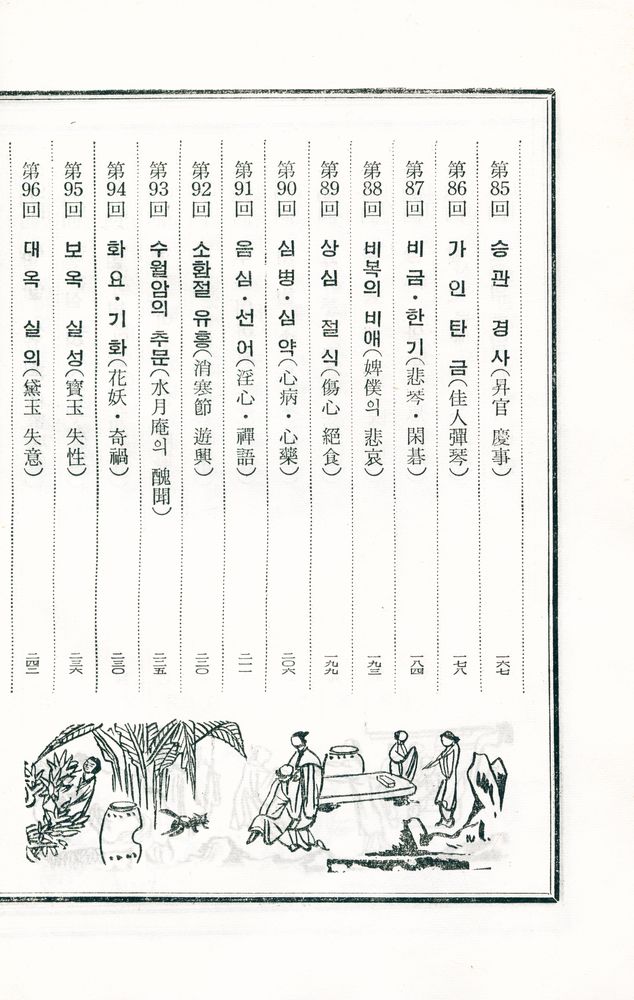 第85回 승관 경사(昇官 慶事) 一六七
第86回 가인 탄금(佳人彈琴) 一七八
第87回 비금·한기(悲琴·閑碁) 一八四
第88回 비복의 비애(婢僕의 悲哀) 一九三
第89回 상심 절식(傷心 絕食) 一九九
第90回 심병·심약(心病·心藥) 二〇六
第91回 음심·선어(淫心·禪語) 二一一
第92回 소환절 유흥(消寒節 遊興) 二二〇
第93回 수월암의 추문(水月庵의 醜聞) 二二五
第94回 화요·기화(花妖·奇禍) 二三〇
第95回 보옥 실성(寶玉 失性) 二三六
第96回 대옥 실의(黛玉 失意) 二四二